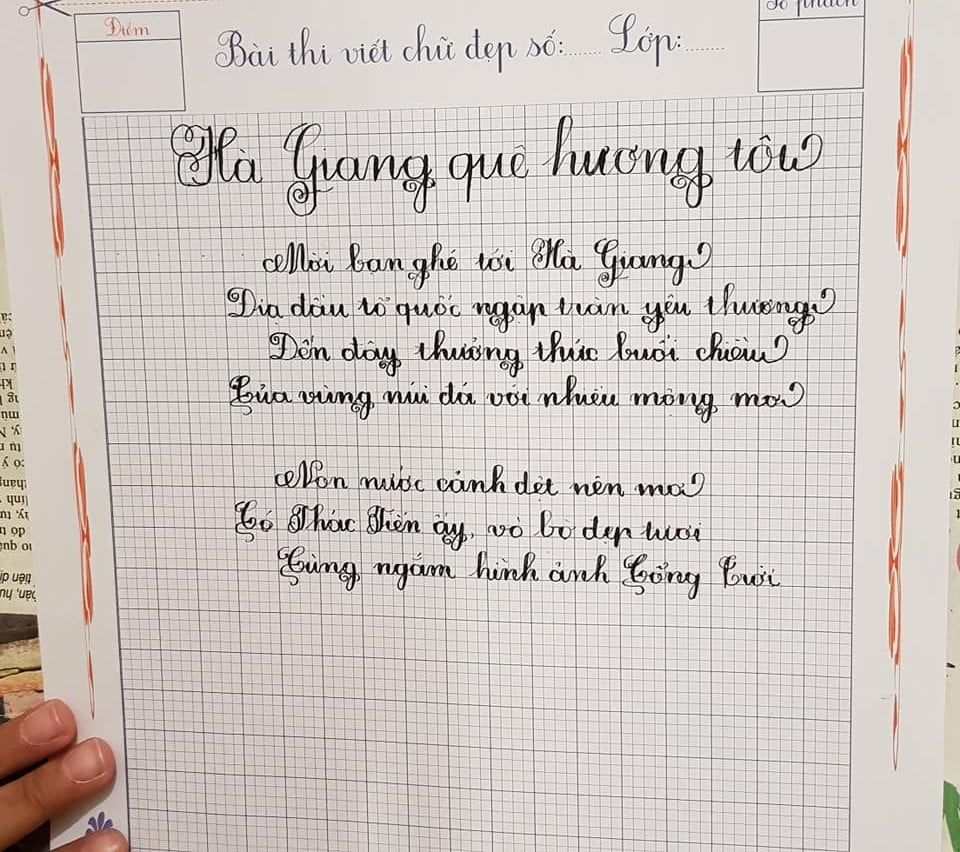 Điểm
Bài thi viết chữ đẹp số:....... Lớp:.......
Số phách
Hà Giang quê hương tôi
Mời bạn ghé tới Hà Giang
Địa đầu tổ quốc ngập tràn yêu thương
Đến đây thưởng thức buổi chiều
Của vùng núi đá với nhiều mộng mơ
Non nước cảnh dệt nên mơ
Có Thác Tiên ấy, vỏ bờ đẹp tươi
Cùng ngắm hình ảnh Cổng Trời